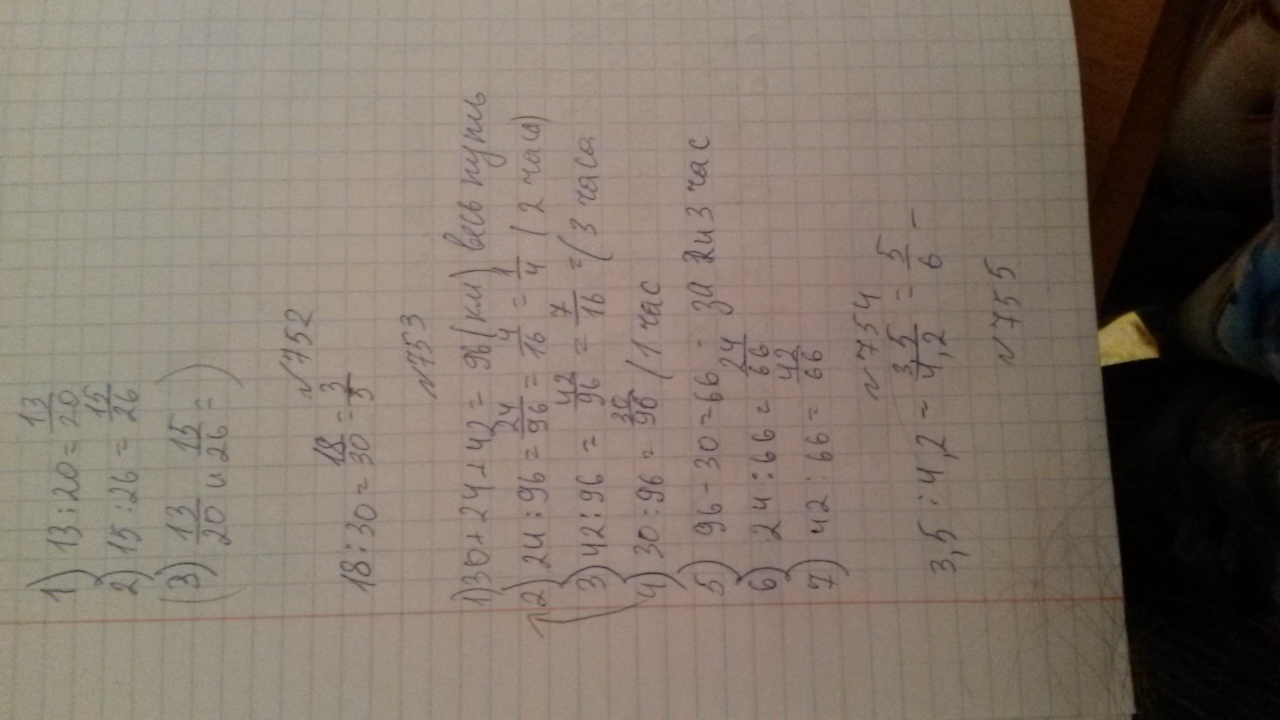 1) 13:20 = 13/20
2) 15:26 = 15/26
(3) 13/20 и 15/26 = )
№752
18:30 = 18/30 = 3/5
№753
1) 30 + 24 + 42 = 96 (км) весь путь
2) 24:96 = 24/96 = 4/16 = 1/4 (2 часа)
3) 42:96 = 42/96 = 7/16 = (3 часа
4) 30:96 = 30/96 (1 час
5) 96 - 30 = 66 - за 2 и 3 час
6) 24:66 = 24/66
7) 42:66 = 42/66
№754
3,5:4,2 = 3,5/4,2 = 5/6 -
№755